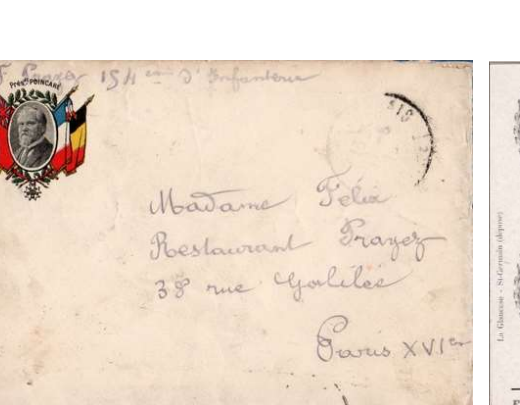 F. Prayez 154 eme d'Infanterie
Prést POINCARÉ
Madame Félix
Restaurant Prayez
38 rue Galilée
Paris XVIe
SIS
La Glaneuse - St-Germain (déposé)